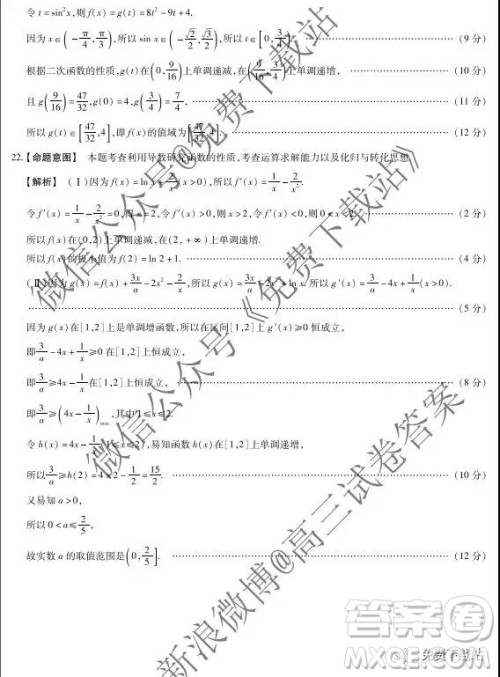 令 t = sin²x,则 f(x) = g(t) = 8t² - 9t + 4.
因为 x∈(-π/4, π/3),所以 sin x∈(-√2/2, √3/2),所以 t∈[0, 3/4). (9 分)
根据二次函数的性质,g(t)在(0, 9/16)上单调递减,在(9/16, 3/4)上单调递增, (10 分)
且 g(9/16) = 47/32, g(0) = 4, g(3/4) = 7/4, (11 分)
所以 g(t)∈[47/32, 4],即 f(x)的值域为[47/32, 4]. (12 分)
22.【命题意图】 本题考查利用导数研究函数的性质,考查运算求解能力以及化归与转化思想.
【解析】 (Ⅰ)因为 f(x) = ln x + 2/x (x>0),所以 f'(x) = 1/x - 2/x².
令 f'(x) = 1/x - 2/x² = 0,得 x = 2,令 f'(x)>0,则 x>2,令 f'(x)<0,则 0<x<2. (2 分)
所以 f(x)在(0,2)上单调递减,在(2,+∞)上单调递增.
所以 f(x)的极小值为 f(2) = ln 2 + 1. (4 分)
(Ⅱ)因为 g(x) = f(x) + 3x/a - 2x² - 2/x,所以 g(x) = 3x/a - 2x² + ln x.所以 g'(x) = 3/a - 4x + 1/x (x>0).
(5 分)
因为 g(x)在[1,2]上是单调增函数,所以在区间[1,2]上 g'(x)≥0 恒成立,
即 3/a - 4x + 1/x ≥0 在[1,2]上恒成立,
即 3/a ≥ 4x - 1/x 在[1,2]上恒成立, (8 分)
即 3/a ≥ (4x - 1/x)max,其中 1≤x≤2.
令 h(x) = 4x - 1/x (1≤x≤2),易知函数 h(x)在[1,2]上单调递增,
所以 3/a ≥ h(2) = 4×2 - 1/2 = 15/2. (10 分)
又易知 a>0,
所以 0<a≤2/5,
故实数 a 的取值范围是(0, 2/5]. (12 分)
微信公众号@免费下载站
微信公众号《免费下载站》
新浪微博@高三试卷答案
答案卷
免费下载站
MXQE.COM